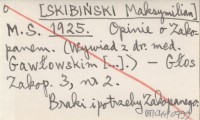 [SKIBIŃSKI Maksymilian]
M.S. 1925. Opinie o Zako-
panem. (Wywiad z dr. med.
Gawłowskim [..].) – Głos
Zakop. 3, nr 2.
Braki i potrzeby Zakopanego.